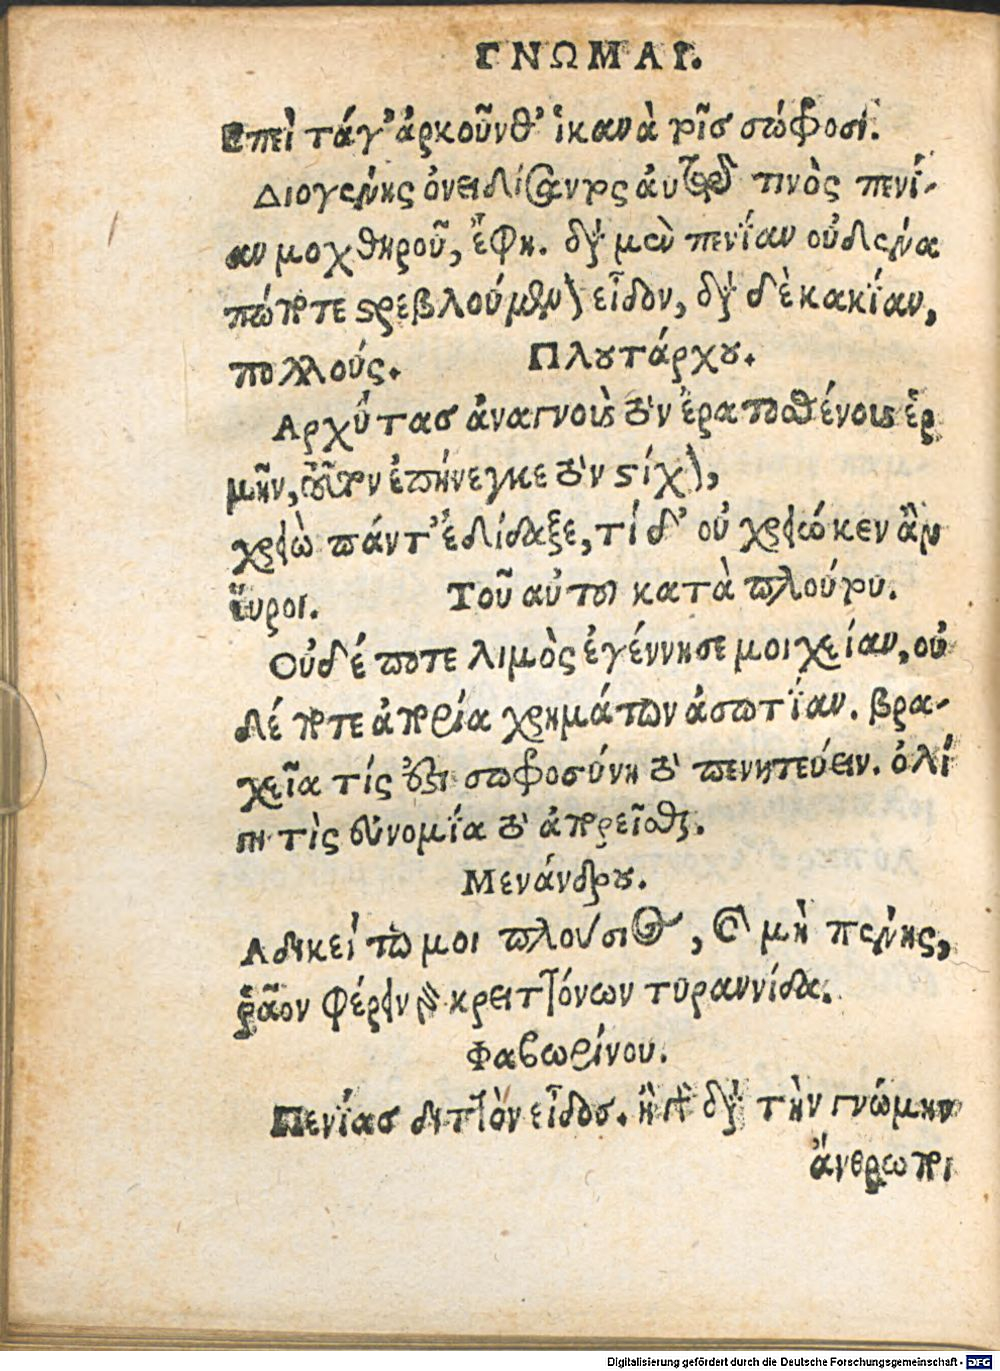 ΓΝΩΜΑΙ.
Επεὶ τάγ' ἀρκοῦνθ' ἱκανὰ τοῖσ σώφροσι.
Διογένης ὀνειδίσαντος αὐτῷ τινὸς πενί-
αν μοχθηροῦ, ἔφη. διὰ μὲν πενίαν οὐδένα
πώποτε στρεβλούμενον εἶδον, διὰ δὲ κακίαν,
πολλούς. Πλουτάρχου.
Αρχύτασ ἀναγνοὺς τὸν ἐρατοσθένους ἑρ
μῆν, τοῦτον ἐπήνεγκε τὸν στίχον,
χρειὼ πάντ' ἐδίδαξε, τί δ' οὐ χρειώ κεν ἀν
εύροι. Τοῦ αὐτοῦ κατὰ πλούτου.
Οὐδέ ποτε λιμὸς ἐγέννησε μοιχείαν, οὐ
δέ ποτε ἀπορία χρημάτων ἀσωτίαν. βρα-
χεῖα τίς ἐστι σωφροσύνη τὸ πενητεύειν. ὀλί
γη τὶς εὐνομία τὸ ἀπορεῖσθαι.
Μενάνδρου.
Αδικείτω μοι πλούσιος, καὶ μὴ πένης,
ῥᾶον φέρειν κρειττόνων τυραννίδα.
Φαβωρίνου.
Πενίασ διττὸν εἶδοσ. ἢ διὰ τὴν γνώμην
ἄνθρωποι
Digitalisierung gefördert durch die Deutsche Forschungsgemeinschaft - DFG